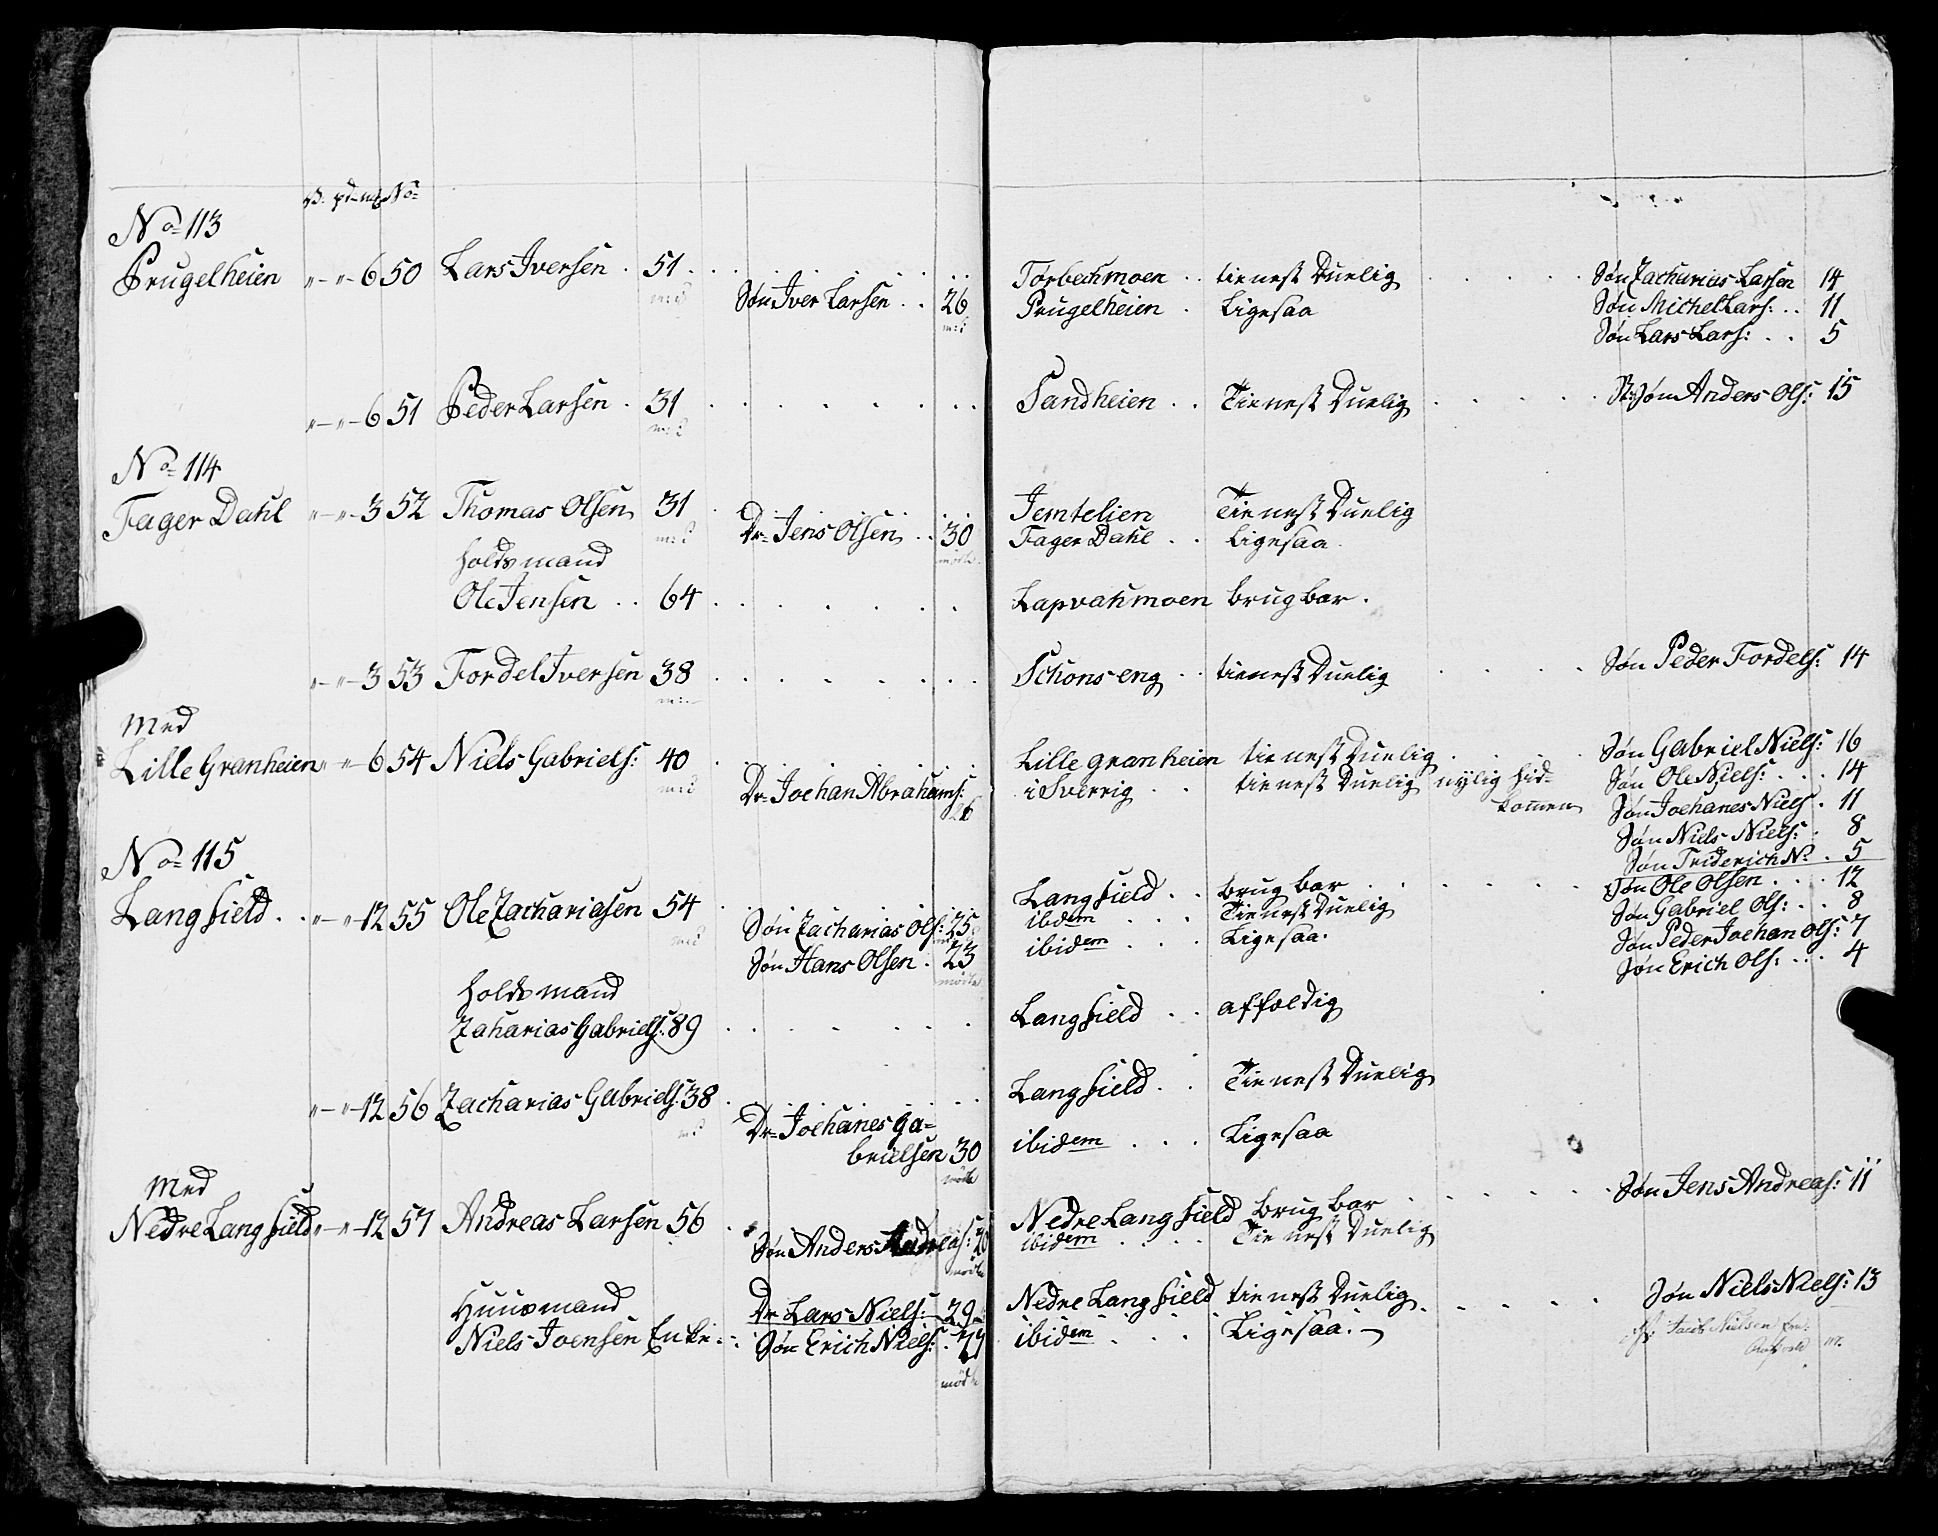 No 113
Prugelheien " - " - 6 50 Lars Iversen . 51 . . . Torbechmoen . . tienest Duelig . . . Søn Zacharias Larsen 14
Søn Iver Larsen . . 26 Prugelheien . Ligesaa Søn Michel Lars: . . 11
Søn Lars Lars: . . 5
" - " - 6 51 Peder Larsen . 31 . . . Sandheien . . Tienest Duelig . . . St: Søn Anders Ols: 15
No 114
Fager Dahl " - " - 3 52 Thomas Olsen 31 . . . Jemtelien Tienest Duelig
Dr= Jens Olsen . . 30 Fager Dahl . . Ligesaa
mødte
Holdsmand
Ole Jensen . . 64 . . . Lapvahmoen brugbar .
" - " - 3 53 Fordel Iversen 38 . . . Schonseng . . tienest Duelig . . . Søn Peder Fordels: 14
Med
Lille Granheien " - " - 6 54 Niels Gabriels: 40 . . . Lille granheien tienest Duelig . . . Søn Gabriel Niels: 16
Dr= Joehan Abrahams: 26 i Sverrig . . tienest Duelig nylig hid= Søn Ole Niels: . . . 14
kommen Søn Joehanes Niels . 11
Søn Niels Niels: . 8
Søn Friderich N: . 5
No 115
Langfield . . " - " - 12 55 Ole Zachariasen 54 . . . Langfield . . brugbar . . . Søn Ole Olsen . . . 12
Søn Zacharias Ols: 25 ibdem . . . Tienest Duelig Søn Gabriel Ols: . . 8
Søn Hans Olsen . 23 ibidem . . . Ligesaa. Søn Peder Joehan Ols: 7
mødte Søn Erich Ols: . . . 4
Holdsmand
Zacharias Gabriels: 89 . . . Langfield . . affældig
" - " - 12 56 Zacharias Gabriels: 38 . . . Langfield . . Tienest Duelig
Dr= Joehanes Ga=
brielsen 30 ibidem . . . Ligesaa
mødte
Med
Nedre Langfield " - " - 12 57 Andreas Larsen 56 . . Nedre Langfield brugbar . . . Søn Jens Andreas: 11
Søn Anders Andreas: 20 ibidem . . . Tienest Duelig
mødte
Huusmand Dr Lars Niels: 29 Nedre Langfield tienest Duelig . . . Søn Niels Niels: 13
Niels Joensen Enke . . Søn Erich Niels: . ibidem . . . Ligesaa. - Jacob Nielsen
mødte